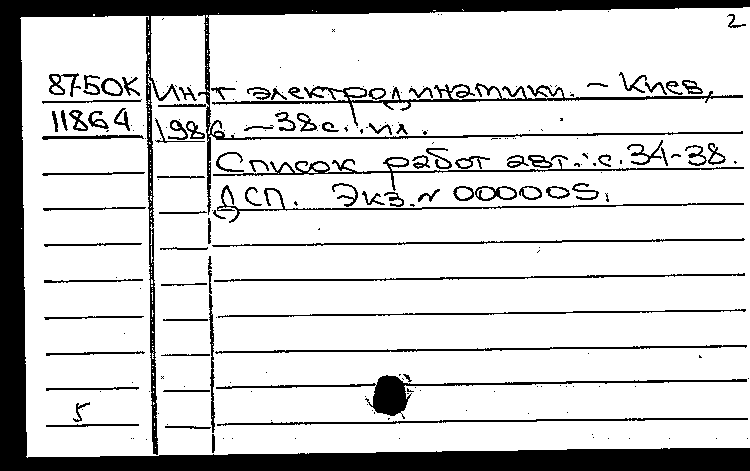 2
87-50К Ин-т электродинамики. – Киев,
11864 1986. – 38 с.: ил.
Список работ авт.: с. 34-38.
ДСП. Экз. № 000005.
5